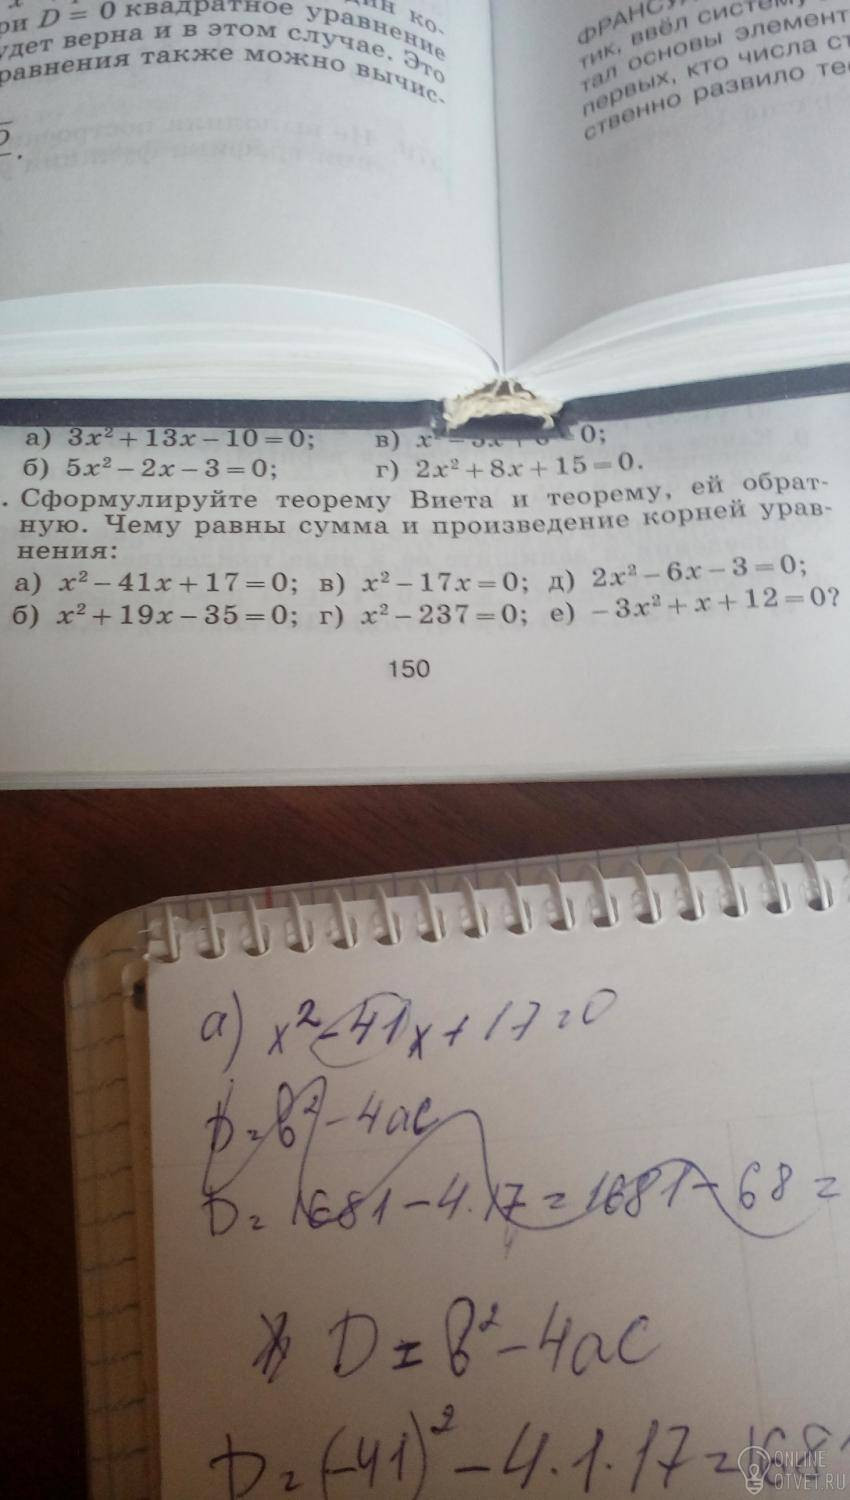 ри D = 0 квадратное уравнение
удет верна и в этом случае. Это
равнения также можно вычис-
ФРАНСУ
тик, ввёл систему
тал основы элемент
первых, кто числа ст
ственно развило тео
а) 3x² + 13x − 10 = 0; в) 0;
б) 5x² − 2x − 3 = 0; г) 2x² + 8x + 15 = 0.
. Сформулируйте теорему Виета и теорему, ей обрат-
ную. Чему равны сумма и произведение корней урав-
нения:
а) x² − 41x + 17 = 0; в) x² − 17x = 0; д) 2x² − 6x − 3 = 0;
б) x² + 19x − 35 = 0; г) x² − 237 = 0; е) − 3x² + x + 12 = 0?
150
а) x² − 41x + 17 = 0
D = b² − 4ac
D = 1681 − 4 · 17 = 1681 − 68 =
D = b² − 4ac
D = (−41)² − 4 · 1 · 17 = 1681
ONLINE
OTVET.RU